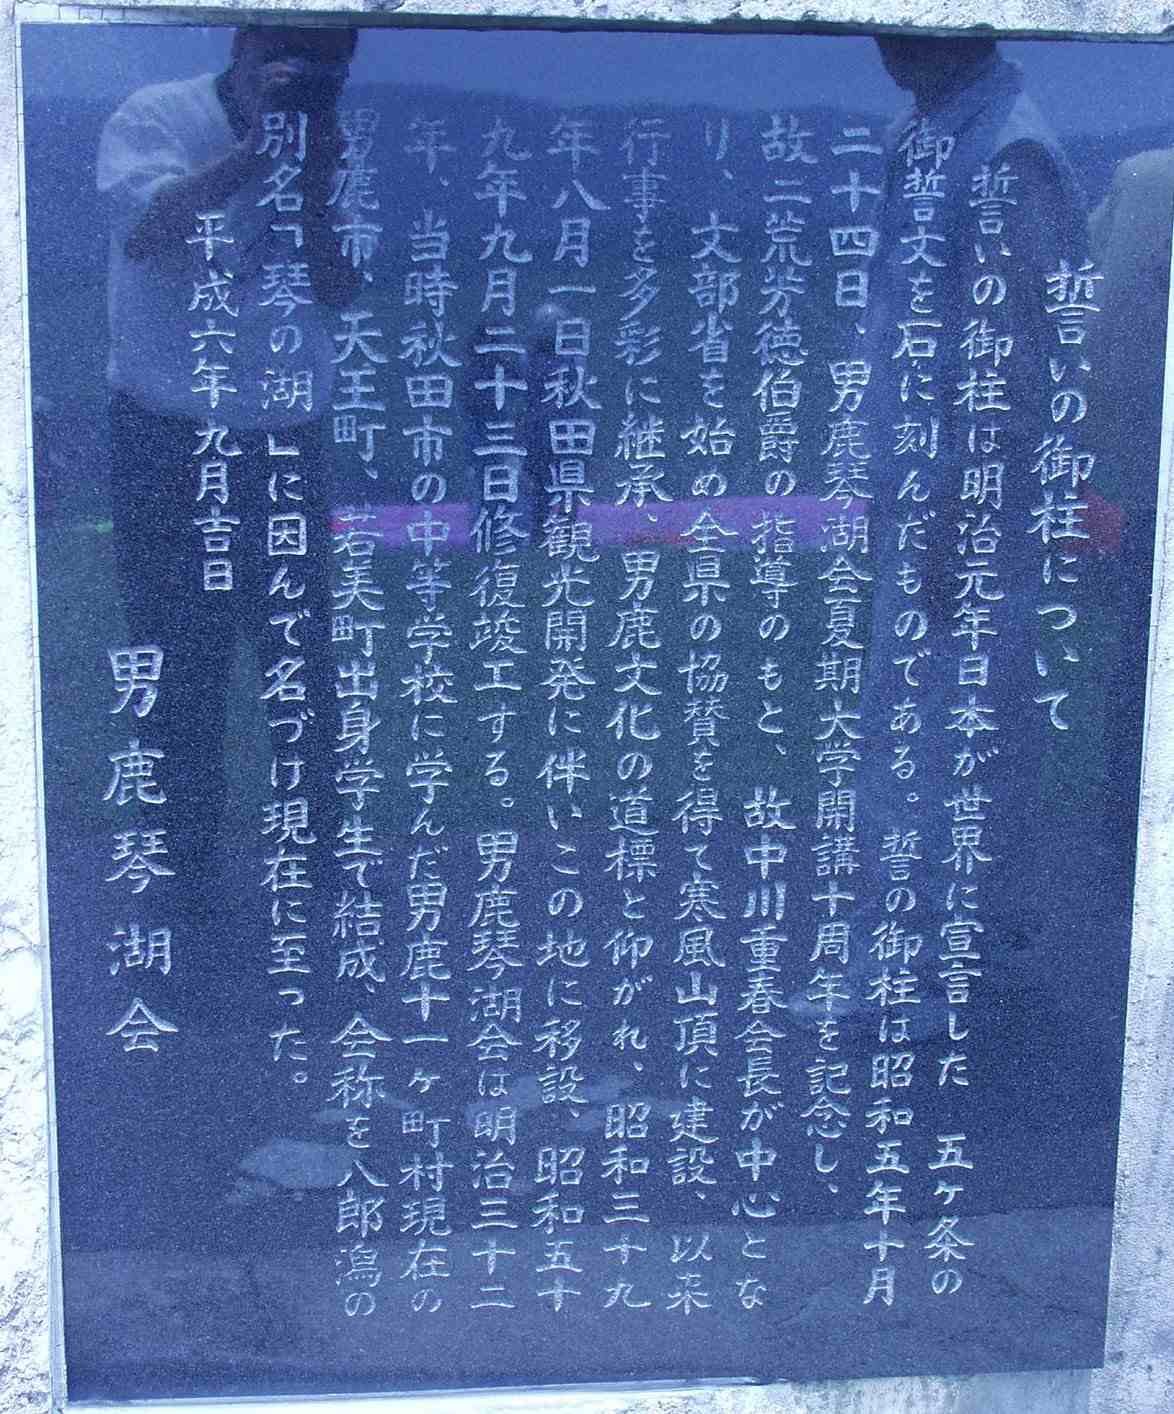 誓いの御柱について
誓いの御柱は明治元年日本が世界に宣言した 五ヶ条の
御誓文を石に刻んだものである。誓の御柱は昭和五年十月
二十四日、男鹿琴湖会夏期大学開講十周年を記念し、
故二荒芳徳伯爵の指導のもと、故中川重春会長が中心とな
り、文部省を始め全県の協賛を得て寒風山頂に建設、以来
行事を多彩に継承、男鹿文化の道標と仰がれ、昭和三十九
年八月一日秋田県観光開発に伴いこの地に移設、昭和五十
九年九月二十三日修復竣工する。男鹿琴湖会は明治三十二
年、当時秋田市の中等学校に学んだ男鹿十一ヶ町村現在の
男鹿市、天王町、若美町出身学生で結成、会称を八郎潟の
別名「琴の湖」に因んで名づけ現在に至った。
平成六年九月吉日
男鹿琴湖会